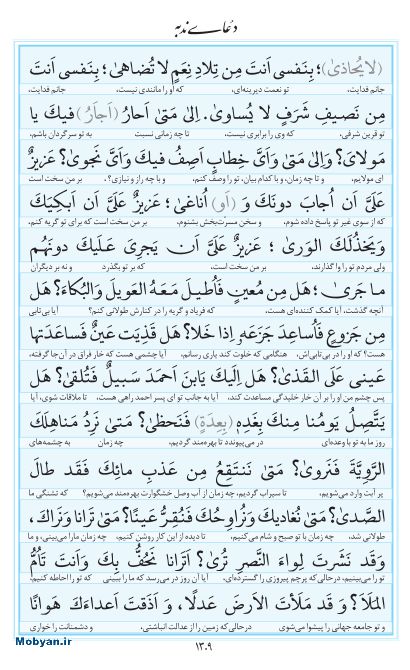 دعاے ندبہ
(لایُحاذیٰ)؛ بِنَفسی اَنتَ مِن تِلادِ نِعَمٍ لا تُضاهیٰ؛ بِنَفسی اَنتَ
جانم فدایت، تو نعمت دیرینه‌ای، که او را مانندی نیست، جانم فدایت،
مِن نَصیفِ شَرَفٍ لا یُساویٰ. اِلیٰ مَتیٰ اَحارُ (اَجأَرُ) فیكَ یا
تو قرین شرفی، که وی را برابری نیست، تا چه زمانی نسبت به تو سرگردان باشم،
مَولایَ؟ وَاِلیٰ مَتیٰ وَاَیَّ خِطابٍ اَصِفُ فیكَ وَاَیَّ نَجویٰ؟ عَزیزٌ
ای مولایم، و تا چه زمان، و با کدام بیان، تو را وصف کنم، و با چه راز و نیازی؟. بر من سخت است
عَلَیَّ اَن اُجابَ دونَكَ وَ (اَو) اُناغیٰ؛ عَزیزٌ عَلَیَّ اَن اَبكِیَكَ
که از سوی غیر تو پاسخ داده شوم و سخن مسرّت‌بخش بشنوم، بر من سخت است که برای تو گریه کنم،
وَیَخذُلَكَ الوَریٰ؛ عَزیزٌ عَلَیَّ اَن یَجرِیَ عَلَیكَ دونَهُم
ولی مردم تو را وا گذارند، بر من سخت است، که بر تو بگذرد و نه بر دیگران
ما جَریٰ؛ هَل مِن مُعینٍ فَاُطیلَ مَعَهُ العَویلَ وَالبُكاءَ؟ هَل
آنچه گذشت، آیا کمک کننده‌ای هست، که فریاد و گریه را در کنارش طولانی کنم؟ آیا بی‌تابی
مِن جَزوعٍ فَاُساعِدَ جَزَعَهُ اِذا خَلا؟ هَل قَذِیَت عَینٌ فَساعَدَتها
هست؟ که او را در بی‌تابی‌اش، هنگامی که خلوت کند یاری رسانم، آیا چشمی هست که خار فراق در آن جا گرفته،
عَینی عَلَی القَذیٰ؟ هَل اِلَیكَ یَابنَ اَحمَدَ سَبیلٌ فَتُلقیٰ؟ هَل
پس چشم من او را بر آن خار خلیدگی مساعدت کند، آیا به جانب تو ای پسر احمد راهی هست، تا ملاقات شوی، آیا
یَتَّصِلُ یَومُنا مِنكَ بِغَدِهٖ (بِعِدَةٍ) فَنَحظیٰ؟ مَتیٰ نَرِدُ مَناهِلَكَ
روز ما به تو با وعده‌ای در می‌پیوندد تا بهره‌مند گردیم، چه زمان به چشمه‌های
الرَّوِیَّةَ فَنَرویٰ؟ مَتیٰ نَنتَقِعُ مِن عَذبِ مائِكَ فَقَد طالَ
پر آبت وارد می‌شویم، تا سیراب گردیم، چه زمان از آب وصل خشگوارت بهره‌مند می‌شویم؟ که تشنگی ما
الصَّدیٰ؟ مَتیٰ نُغادیكَ وَنُراوِحُكَ فَنُقِرَّ عَینًا؟ مَتیٰ تَرانا وَنَراكَ،
طولانی شد، چه زمان با تو صبح و شام می‌کنیم، تا دیده از این کار روشن کنیم، چه زمان ما را می‌بینی، و ما
وَقَد نَشَرتَ لِواءَ النَّصرِ تُریٰ؟ اَتَرانا نَحُفُّ بِكَ وَاَنتَ تَاُمُّ
تو را می‌بینیم، درحالی‌که پرچم پیروزی را گسترده‌ای، آیا آن روز در می‌رسد که ما را ببینی که تو را احاطه کنیم،
المَلَاَ؟ وَ قَد مَلَأتَ الاَرضَ عَدلًا، وَ اَذَقتَ اَعداءَكَ هَوانًا
و تو جامعه جهانی را پیشوا می‌شوی درحالی‌که زمین را از عدالت انباشتی، و دشمنانت را خواری
۱۳۰۹
Mobyan.ir